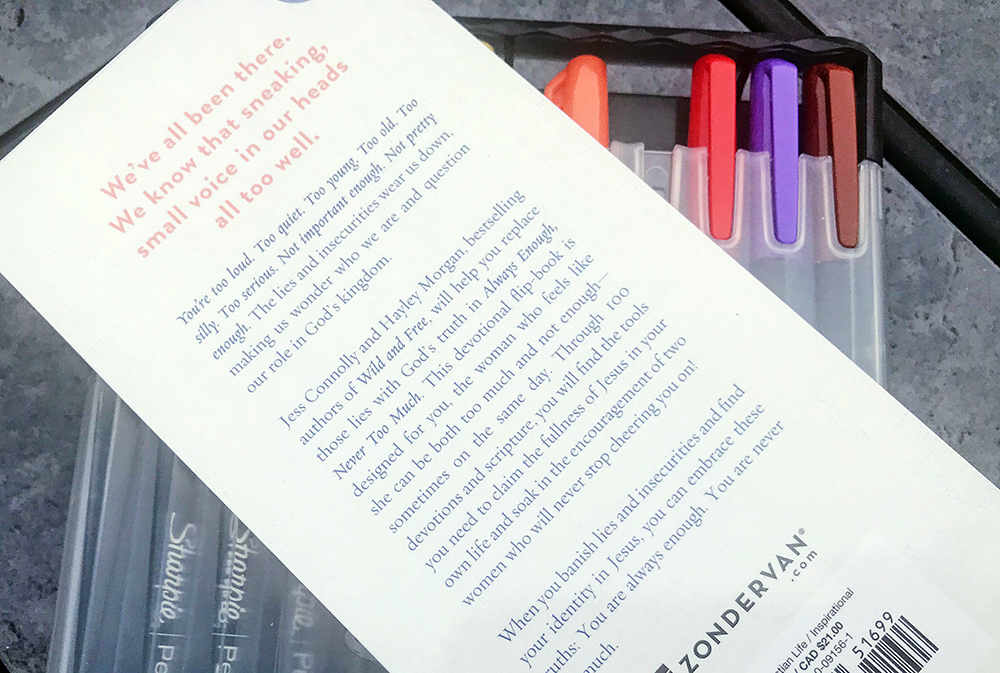 We've all been there.
We know that sneaking,
small voice in our heads
all too well.
You're too loud. Too quiet. Too young. Too old. Too
silly. Too serious. Not important enough. Not pretty
enough. The lies and insecurities wear us down,
making us wonder who we are and question
our role in God's kingdom.
Jess Connolly and Hayley Morgan, bestselling
authors of Wild and Free, will help you replace
those lies with God's truth in Always Enough,
Never Too Much. This devotional flip-book is
designed for you, the woman who feels like
she can be both too much and not enough—
sometimes on the same day. Through 100
devotions and scripture, you will find the tools
you need to claim the fullness of Jesus in your
own life and soak in the encouragement of two
women who will never stop cheering you on!
When you banish lies and insecurities and find
your identity in Jesus, you can embrace these
truths: You are always enough. You are never
much.
ZONDERVAN®
.com
tian Life / Inspirational
/ CAD $21.00
0-09156-1
51699
Sharpie | Pe
Sharpie | Pe
Sharpie